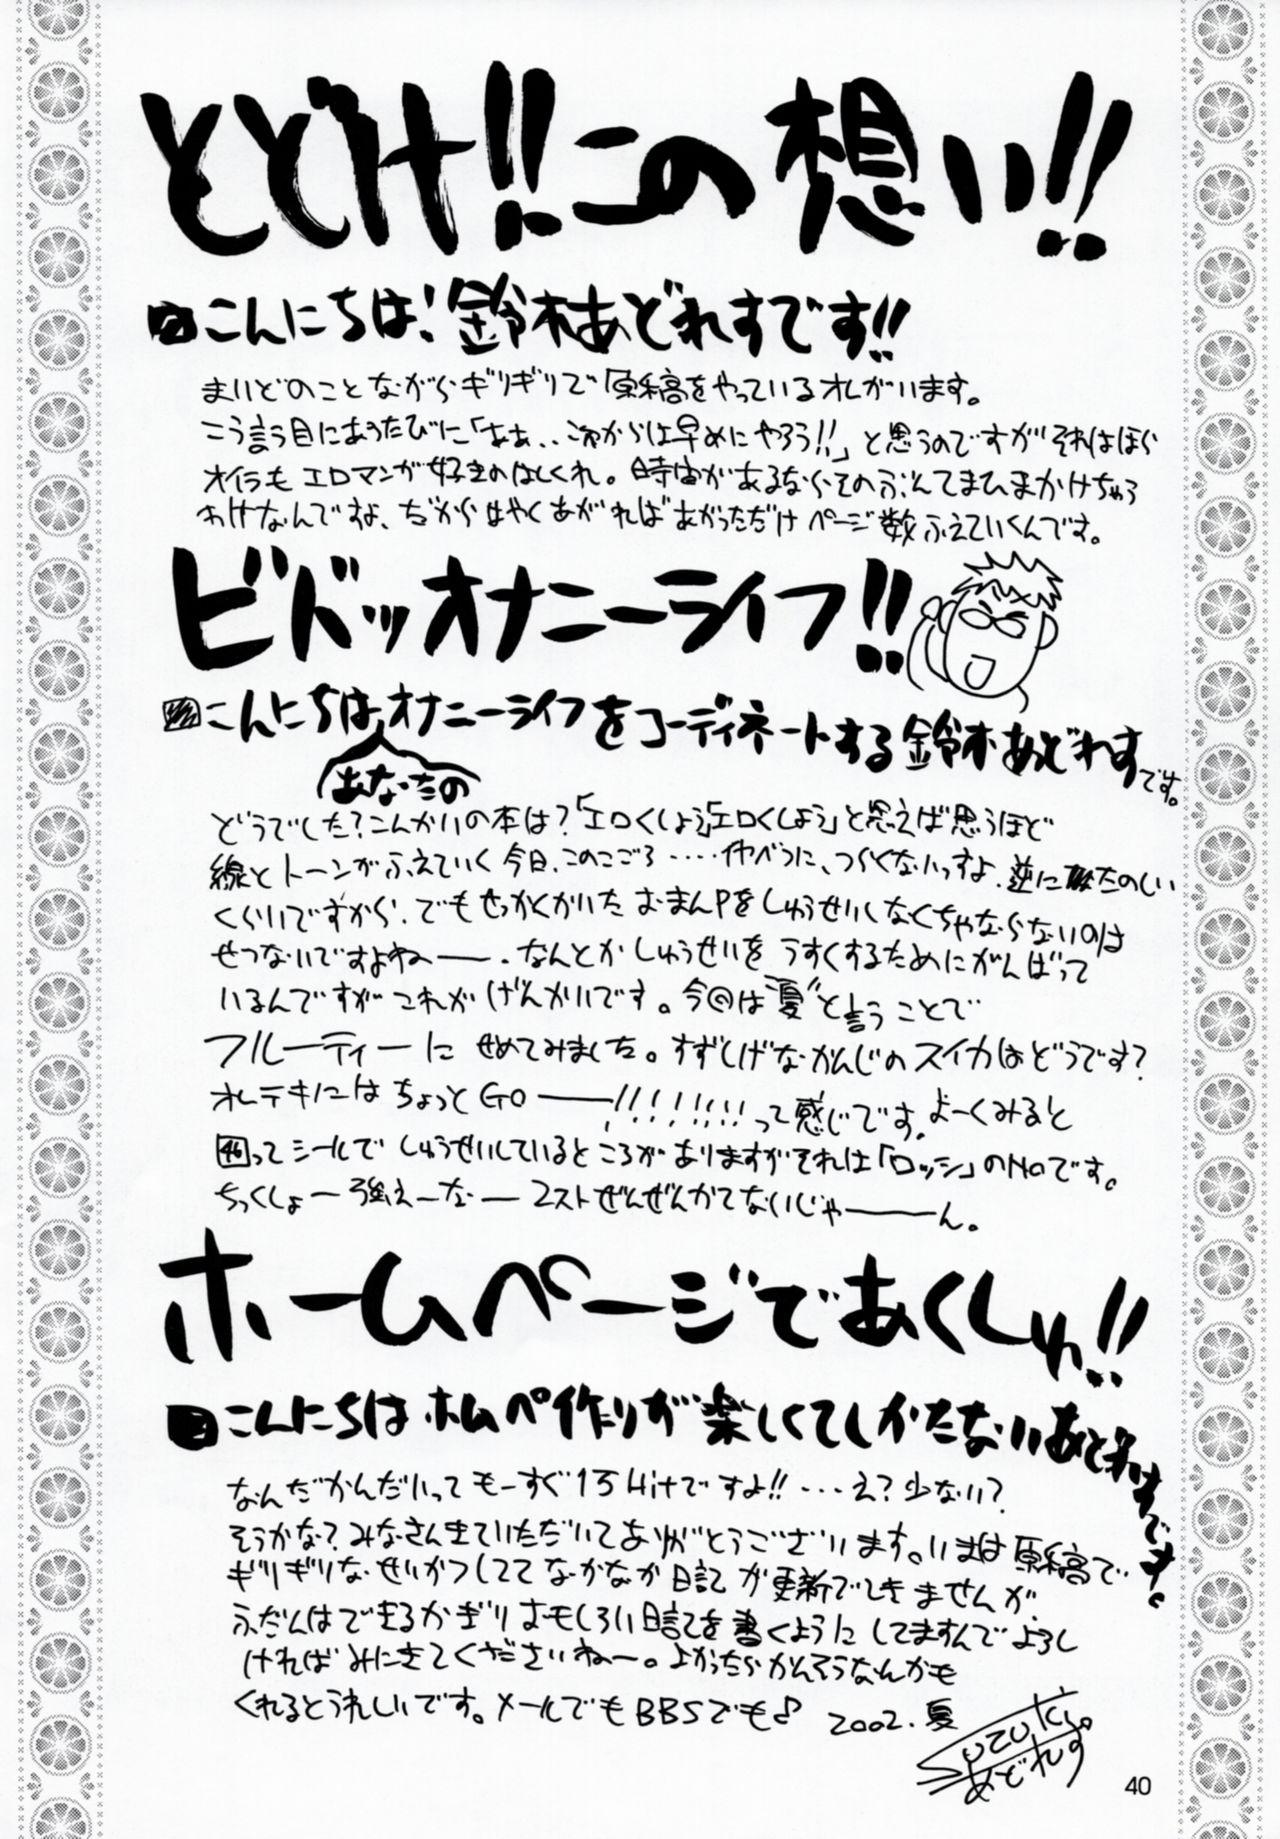 とどけ!!この想い!!
こんにちは!鈴木あどれすです!!
まいどのことながらギリギリで原稿をやっているオレがいます。
こう言う目にあうたびに「ああ、、これからは早めにやろう!!」と思うのですがそれはほら
オイラもエロマンガ好きのはしくれ。時間があるならそのぶんてまひまかけちゃう
わけなんですよ、だからはやくあがればあがっただけページ数ふえていくんです。
ビバドッオナニーライフ!!
こんにちはオナニーライフをコーディネートする鈴木あどれすです。
あなたの
どうでした?こんかいの本は?「エロくしよう」「エロくしよう」と思えば思うほど
線とトーンがふえていく今日、このごろ‥‥‥べつに、つらくないっすよ、逆にたのしい
くらいですから、でもせっかくかいたおまんPをしゅうせいしなくちゃならないのは
せつないですよねー、なんとかしゅうせいをうすくするためにがんばって
いるんですがこれがげんかいです。今回は"夏"と言うことで
フルーティーにせめてみました。すずしげなかんじのスイカはどうです?
オレテキにはちょっとGOー!!!!!!!!って感じです。よーくみると
46ってシールでしゅうせいしているところがありますがそれは「ロッシ」のNoです。
ちっくしょー強えーなー2ストぜんぜんかてないじゃーん。
ホームページであくしゅ!!
こんにちはホムペ作りが楽しくてしかたないあどれすです。
なんだかんだいってもーすぐ1万Hitですよ!!‥‥え?少ない?
そうかな?みなさんきていただいてありがとうございます。いまは原稿で
ギリギリなせいかつしててなかなか日記が更新できませんが
ふだんはできるかぎりおもしろい日記を書くようにしてますんでよろし
ければみにきてくださいねー。よかったらかんそうなんかも
くれるとうれしいです。メールでもBBSでも♪ 2002.夏
Suzuki
あどれす
40